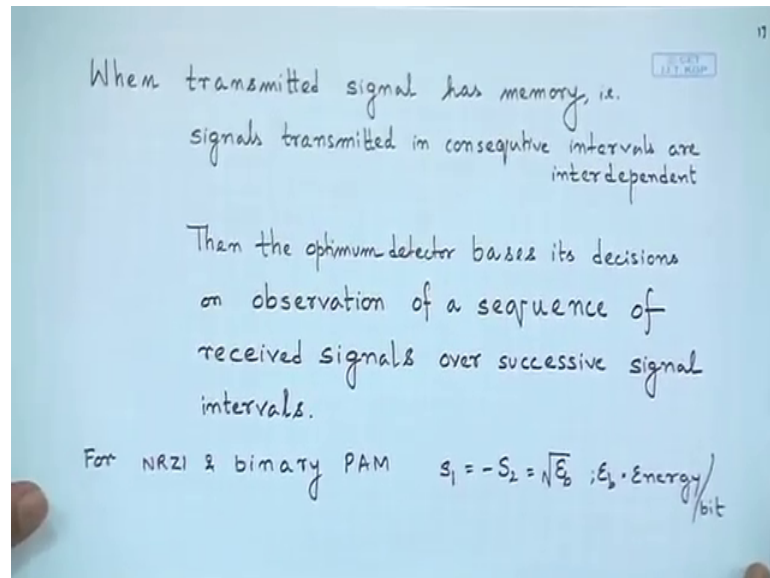 17
© CET
I.I.T. KGP
When transmitted signal has memory, i.e.
signals transmitted in consequtive intervals are
interdependent
Then the optimum detector bases its decisions
on observation of a seqruence of
received signals over successive signal
intervals.
For NRZI & binary PAM S₁ = -S₂ = √Ɛb ; Ɛb · Energy/bit